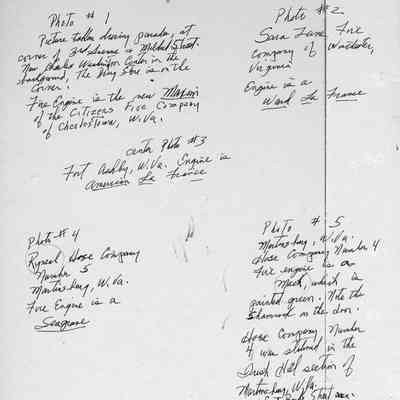 Photo # 1
Picture taken during parade, at
corner of 3rd Avenue & Mildred Street.
New Charles Washington Center in the
background, The Army Store is on the
corner.
Fire Engine is the new Maxim
of the Citizens Fire Company
of Charlestown, W.Va.
Photo # 2
Sara Zane Fire
Company of Winchester,
Virginia
Engine is a
Ward La France
center Photo # 3
Fort Ashby, W.Va. Engine is
American La France
Photo # 4
Hose Company
Number 5
Martinsburg, W.Va.
Fire Engine is a
Seagrave
Photo # 5
Martinsburg, W.Va.
Hose Company Number 4
Fire engine is a
Mack, which is
painted green. Note the
Shamrock on the door.
Hose Company Number
4 was stationed in the
Irish Hill section of
Martinsburg, W.Va.
Street